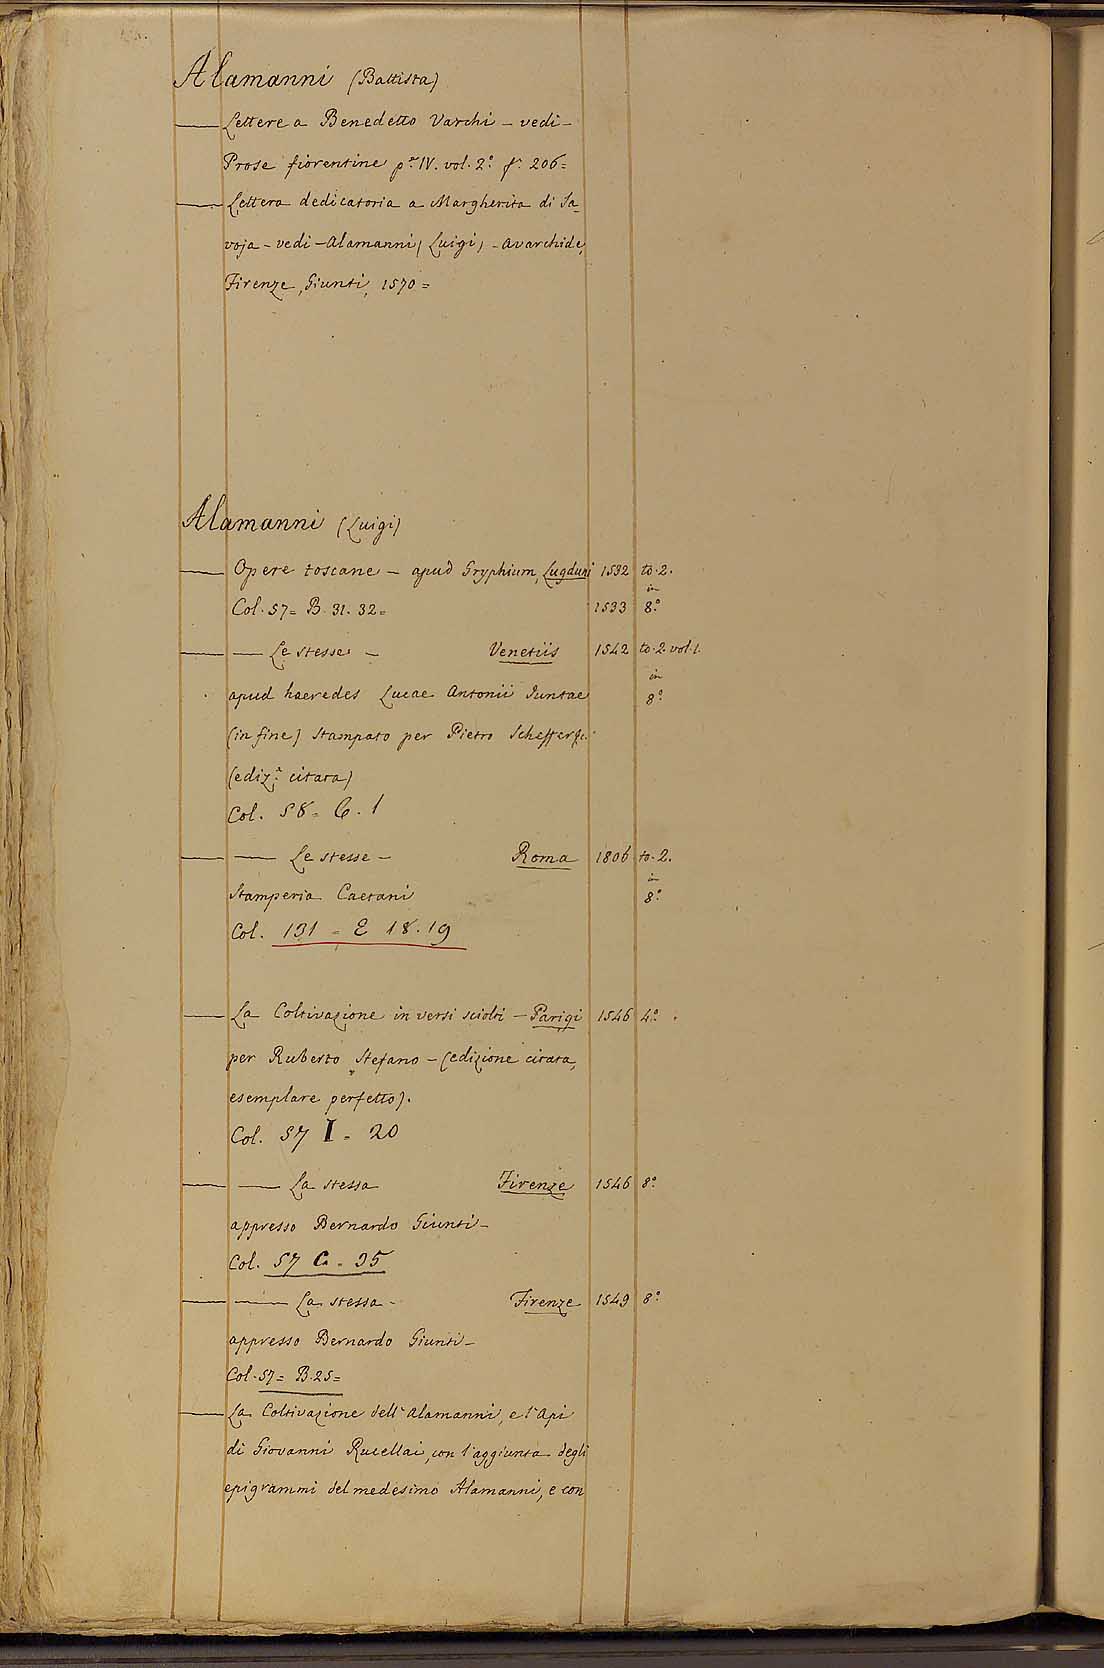 Alamanni (Battista)
— Lettere a Benedetto Varchi – vedi –
Prose fiorentine p.ᵉ IV. vol. 2.° fᵃ 206 =
— Lettera dedicatoria a Margherita di Sa_
voja – vedi – Alamanni (Luigi) – Avarchide,
Firenze, Giunti, 1570 =
Alamanni (Luigi)
— Opere toscane – apud Gryphium, Lugduni 1532 to. 2.
in
Col. 57 = B. 31. 32 = 1533 8.°
— — Le stesse – Venetiis 1542 to. 2 vol. 1.
in
apud haeredes Lucae Antonii Juntae 8.°
(in fine) Stampato per Pietro Scheffer &c.
(ediz.ᵉ citata)
Col. 58 = C. 1
— — Le stesse – Roma 1806 to. 2.
in
Stamperia Caetani 8.°
Col. 131 = E 18. 19
— La Coltivazione in versi sciolti – Parigi 1546 4.°
per Ruberto Stefano – (edizione citata,
esemplare perfetto).
Col. 57 I = 20
— — La stessa Firenze 1546 8.°
appresso Bernardo Giunti –
Col. 57 C = 35
— — La stessa – Firenze 1549 8.°
appresso Bernardo Giunti –
Col. 57 = B. 25 =
— La Coltivazione dell'Alamanni, e l'Api
di Giovanni Rucellai, con l'aggiunta degli
epigrammi del medesimo Alamanni, e con